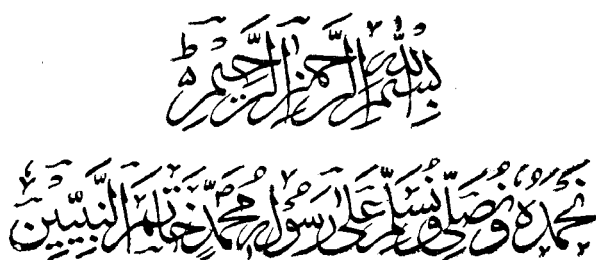 بِسْمِ اللهِ الرَّحْمٰنِ الرَّحِيْمِ ط
نَحْمَدُهٗ وَنُصَلِّيْ وَنُسَلِّمُ عَلٰى رَسُوْلِهٖ مُحَمَّدٍ خَاتَمِ النَّبِيّٖيْنَ